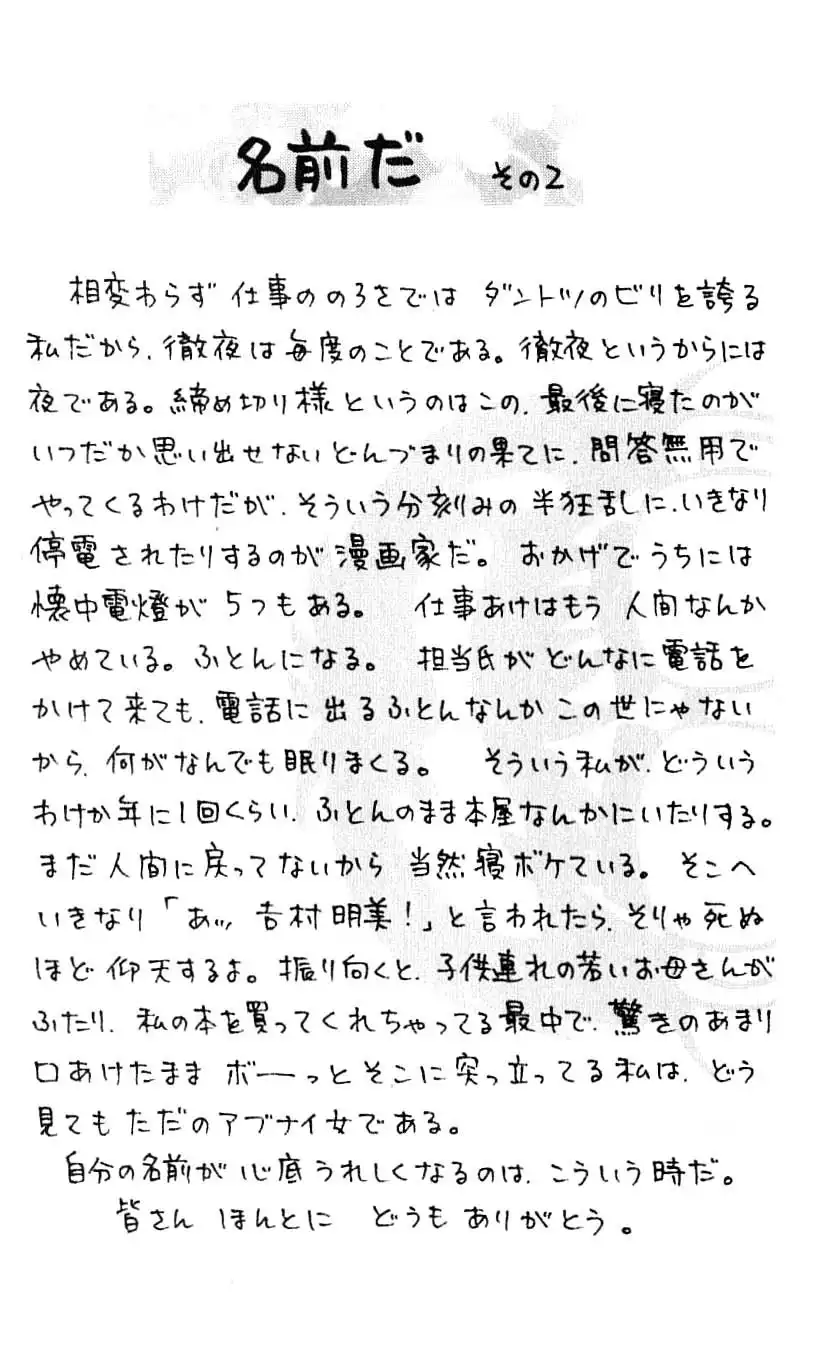 名前だ その2
相変わらず 仕事ののろさでは ダントツのビリを誇る
私だから、徹夜は毎度のことである。徹夜というからには
夜である。締め切り様というのはこの、最後に寝たのが
いつだか思い出せないどんづまりの果てに、問答無用で
やってくるわけだが、そういう分刻みの半狂乱に、いきなり
停電されたりするのが漫画家だ。 おかげでうちには
懐中電燈が5つもある。 仕事あけはもう 人間なんか
やめている。ふとんになる。 担当氏がどんなに電話を
かけて来ても、電話に出るふとんなんかこの世にゃない
から、何がなんでも眠りまくる。 そういう私が、どういう
わけか年に1回くらい、ふとんのまま本屋なんかにいたりする。
まだ人間に戻ってないから 当然寝ボケている。 そこへ
いきなり「あッ、吉村明美!」と言われたら、そりゃ死ぬ
ほど仰天するよ。振り向くと、子供連れの若いお母さんが
ふたり、私の本を買ってくれちゃってる最中で、驚きのあまり
口あけたまま ボーーっとそこに突っ立ってる私は、どう
見てもただのアブナイ女である。
自分の名前が心底うれしくなるのは、こういう時だ。
皆さん ほんとに どうも ありがとう。